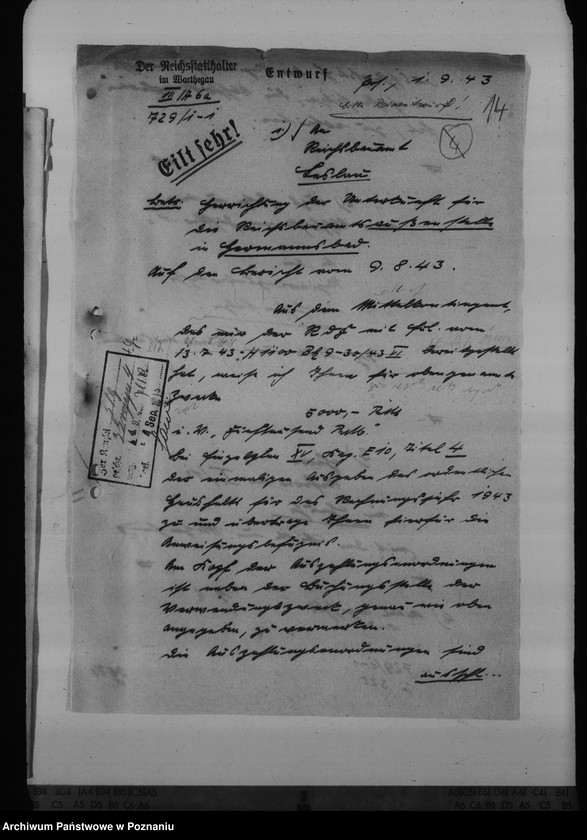 Der Reichsstatthalter
im Warthegau
Entwurf
Pos., 1. 9. 43
III A 6a
729/1-1
bitte Reinentwurf!
14
4
Eilt sehr!
1) An
Reichsbauamt
Leslau
Betr: Herrichtung der Unterkunft für
die Reichsbauamtsaußenstelle
in Hermannsbad.
Auf den Bericht vom 9.8.43.
Aus dem Mittelkontingent,
das mir der RdF mit Erl. vom
13.7.43 - 30/43 VI bereitgestellt
hat, weise ich Ihnen für obengenannte
Zwecke
5000,- RM
i. W. "Fünftausend RM"
bei Einzelplan XV, Kap. E 10, Titel 4
der einmaligen Ausgaben des ordentlichen
Haushalts für das Rechnungsjahr 1943
zu und übertrage Ihnen hierfür die
Anweisungsbefugnis.
Am Kopf der Auszahlungsanordnungen
ist neben der Buchungsstelle der
Verwendungszweck, genau wie oben
angegeben, zu vermerken.
Die Auszahlungsanordnungen sind
ausschl...
Sep.
Archiwum Państwowe w Poznaniu